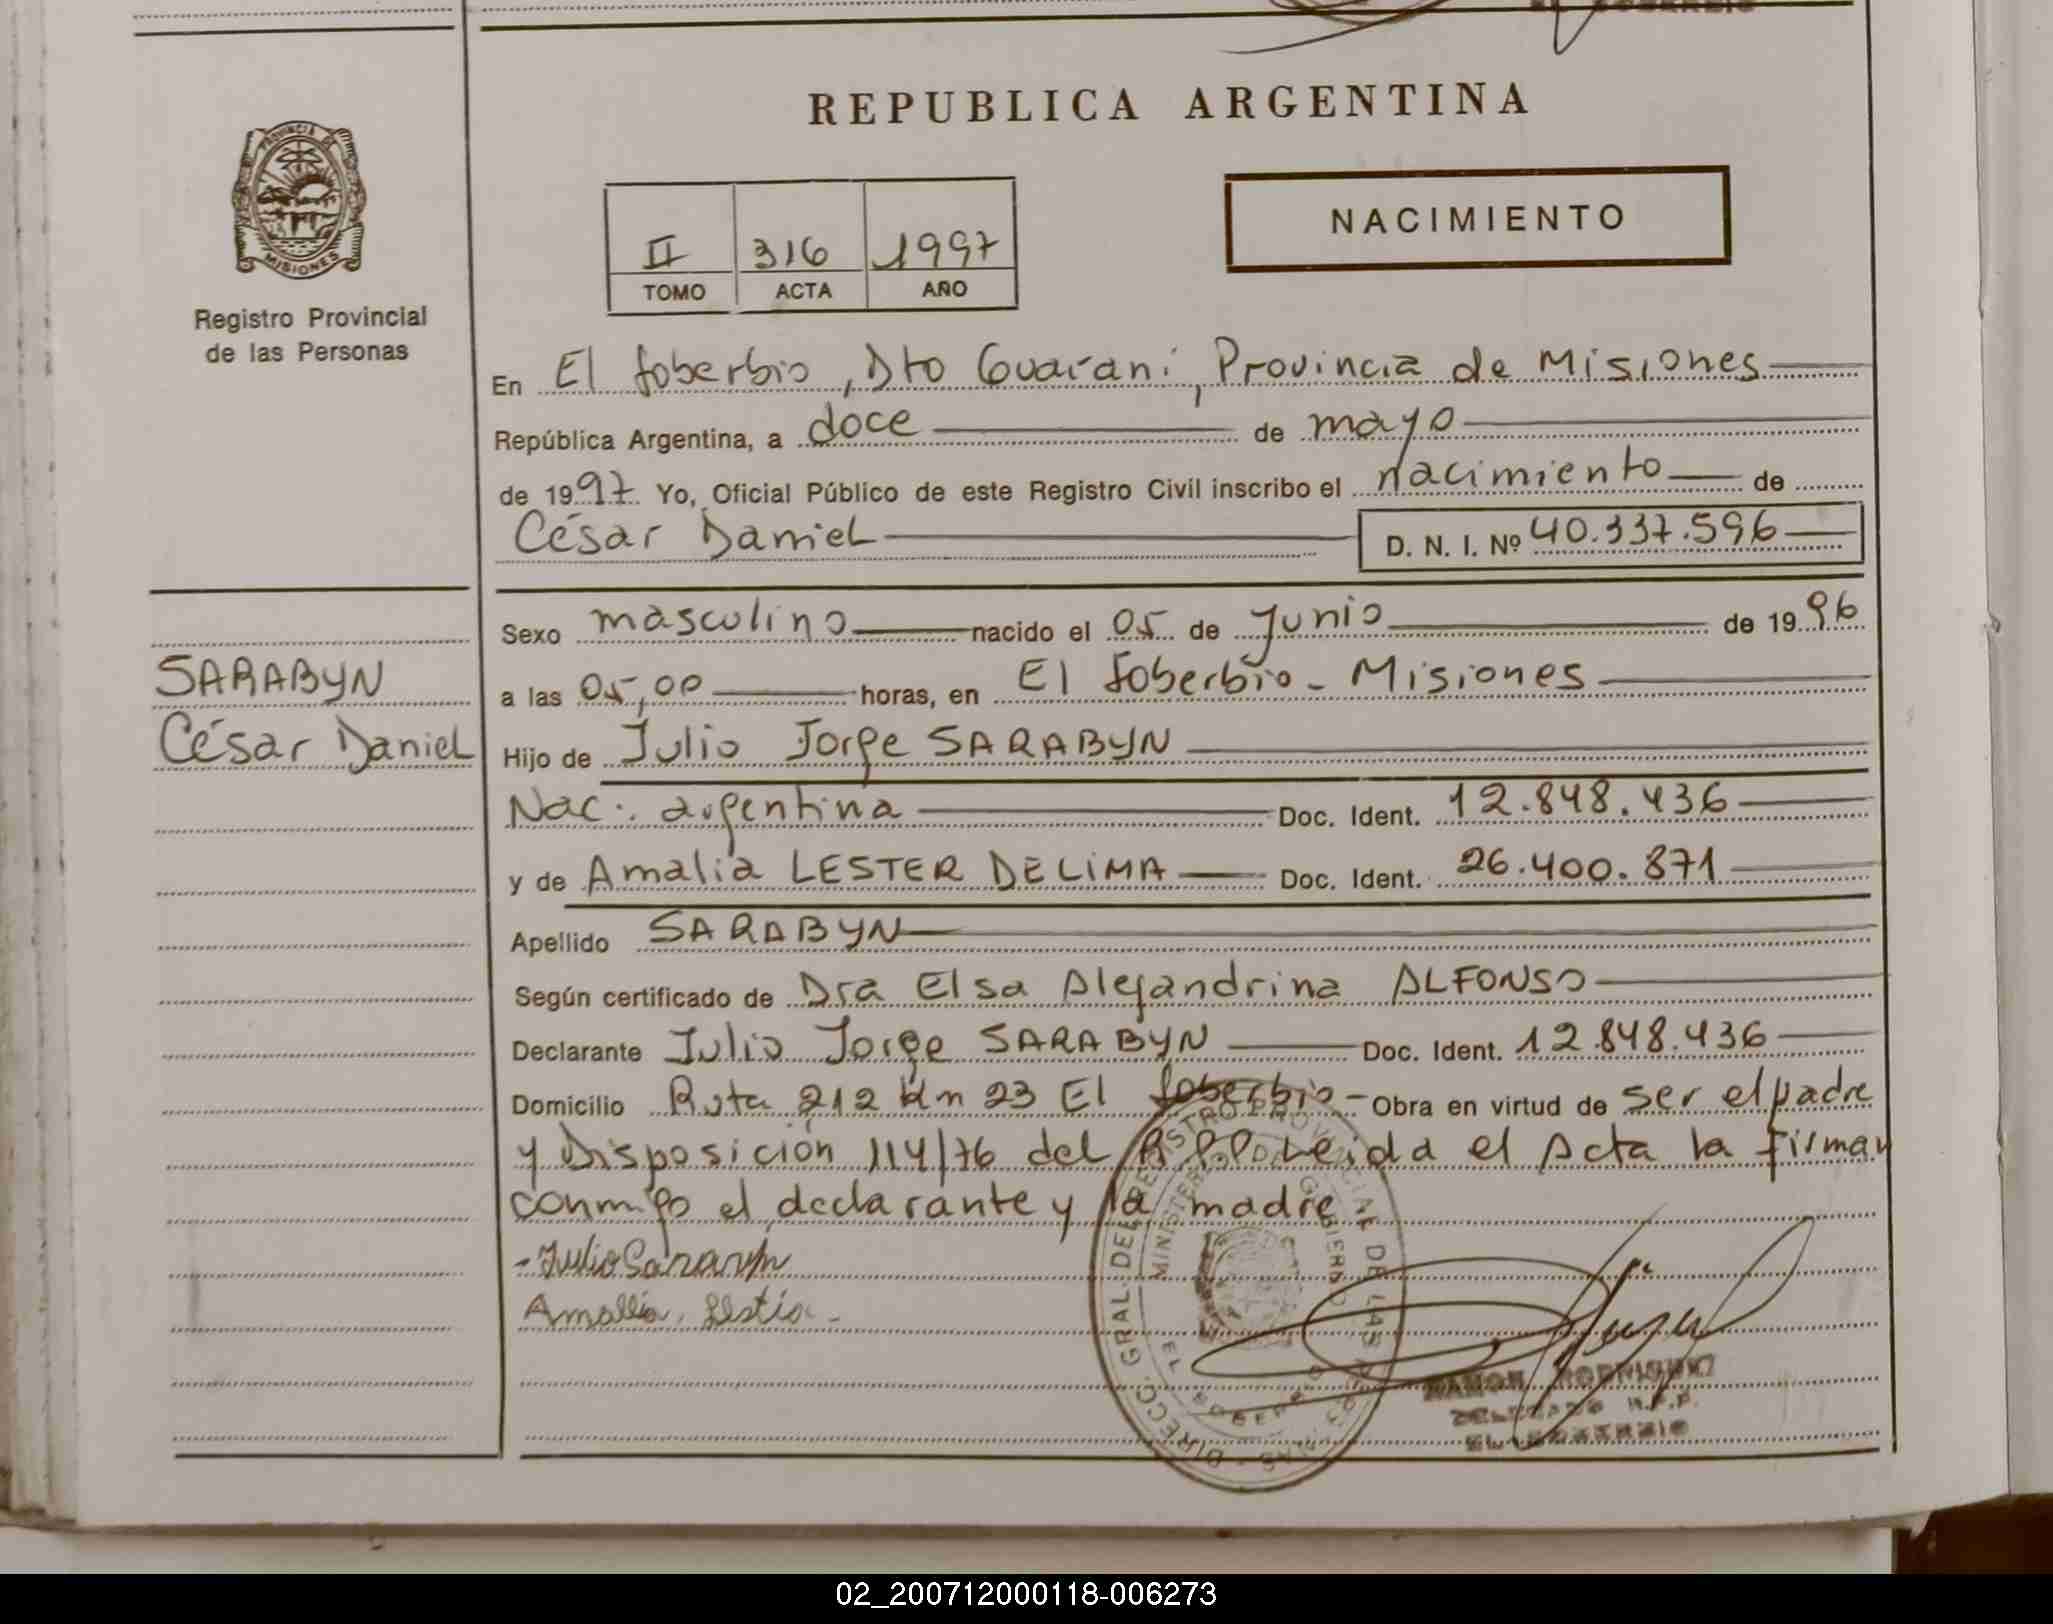 REPUBLICA ARGENTINA
PROVINCIA DE
MISIONES
Registro Provincial
de las Personas
II 316 1997
TOMO ACTA AÑO
NACIMIENTO
En El Soberbio, Dto Guaraní, Provincia de Misiones
República Argentina, a doce de mayo
de 1997 Yo, Oficial Público de este Registro Civil inscribo el nacimiento de
César Daniel D. N. I. Nº 40.337.596
Sexo masculino nacido el 05 de Junio de 1996
SARABYN
César Daniel
a las 05,00 horas, en El Soberbio - Misiones
Hijo de Julio Jorge SARABYN
Nac: argentina Doc. Ident. 12.848.436
y de Amalia LESTER DELIMA Doc. Ident. 26.400.871
Apellido SARABYN
Según certificado de Dra Elsa Alejandrina ALFONSO
Declarante Julio Jorge SARABYN Doc. Ident. 12.848.436
Domicilio Ruta 212 Km 23 El Soberbio - Obra en virtud de ser el padre
y Disposición 114/76 del R.P.P. Leida el Acta la firman
conmigo el declarante y la madre.
- Julio
Amalia
DIRECC. GRAL. DEL REGISTRO PROVINCIAL DE LAS PERSONAS
MINISTERIO DE GOBIERNO
EL SOBERBIO
RAMON RODRIGUEZ
DELEGADO R.P.P.
EL SOBERBIO
02_200712000118-006273